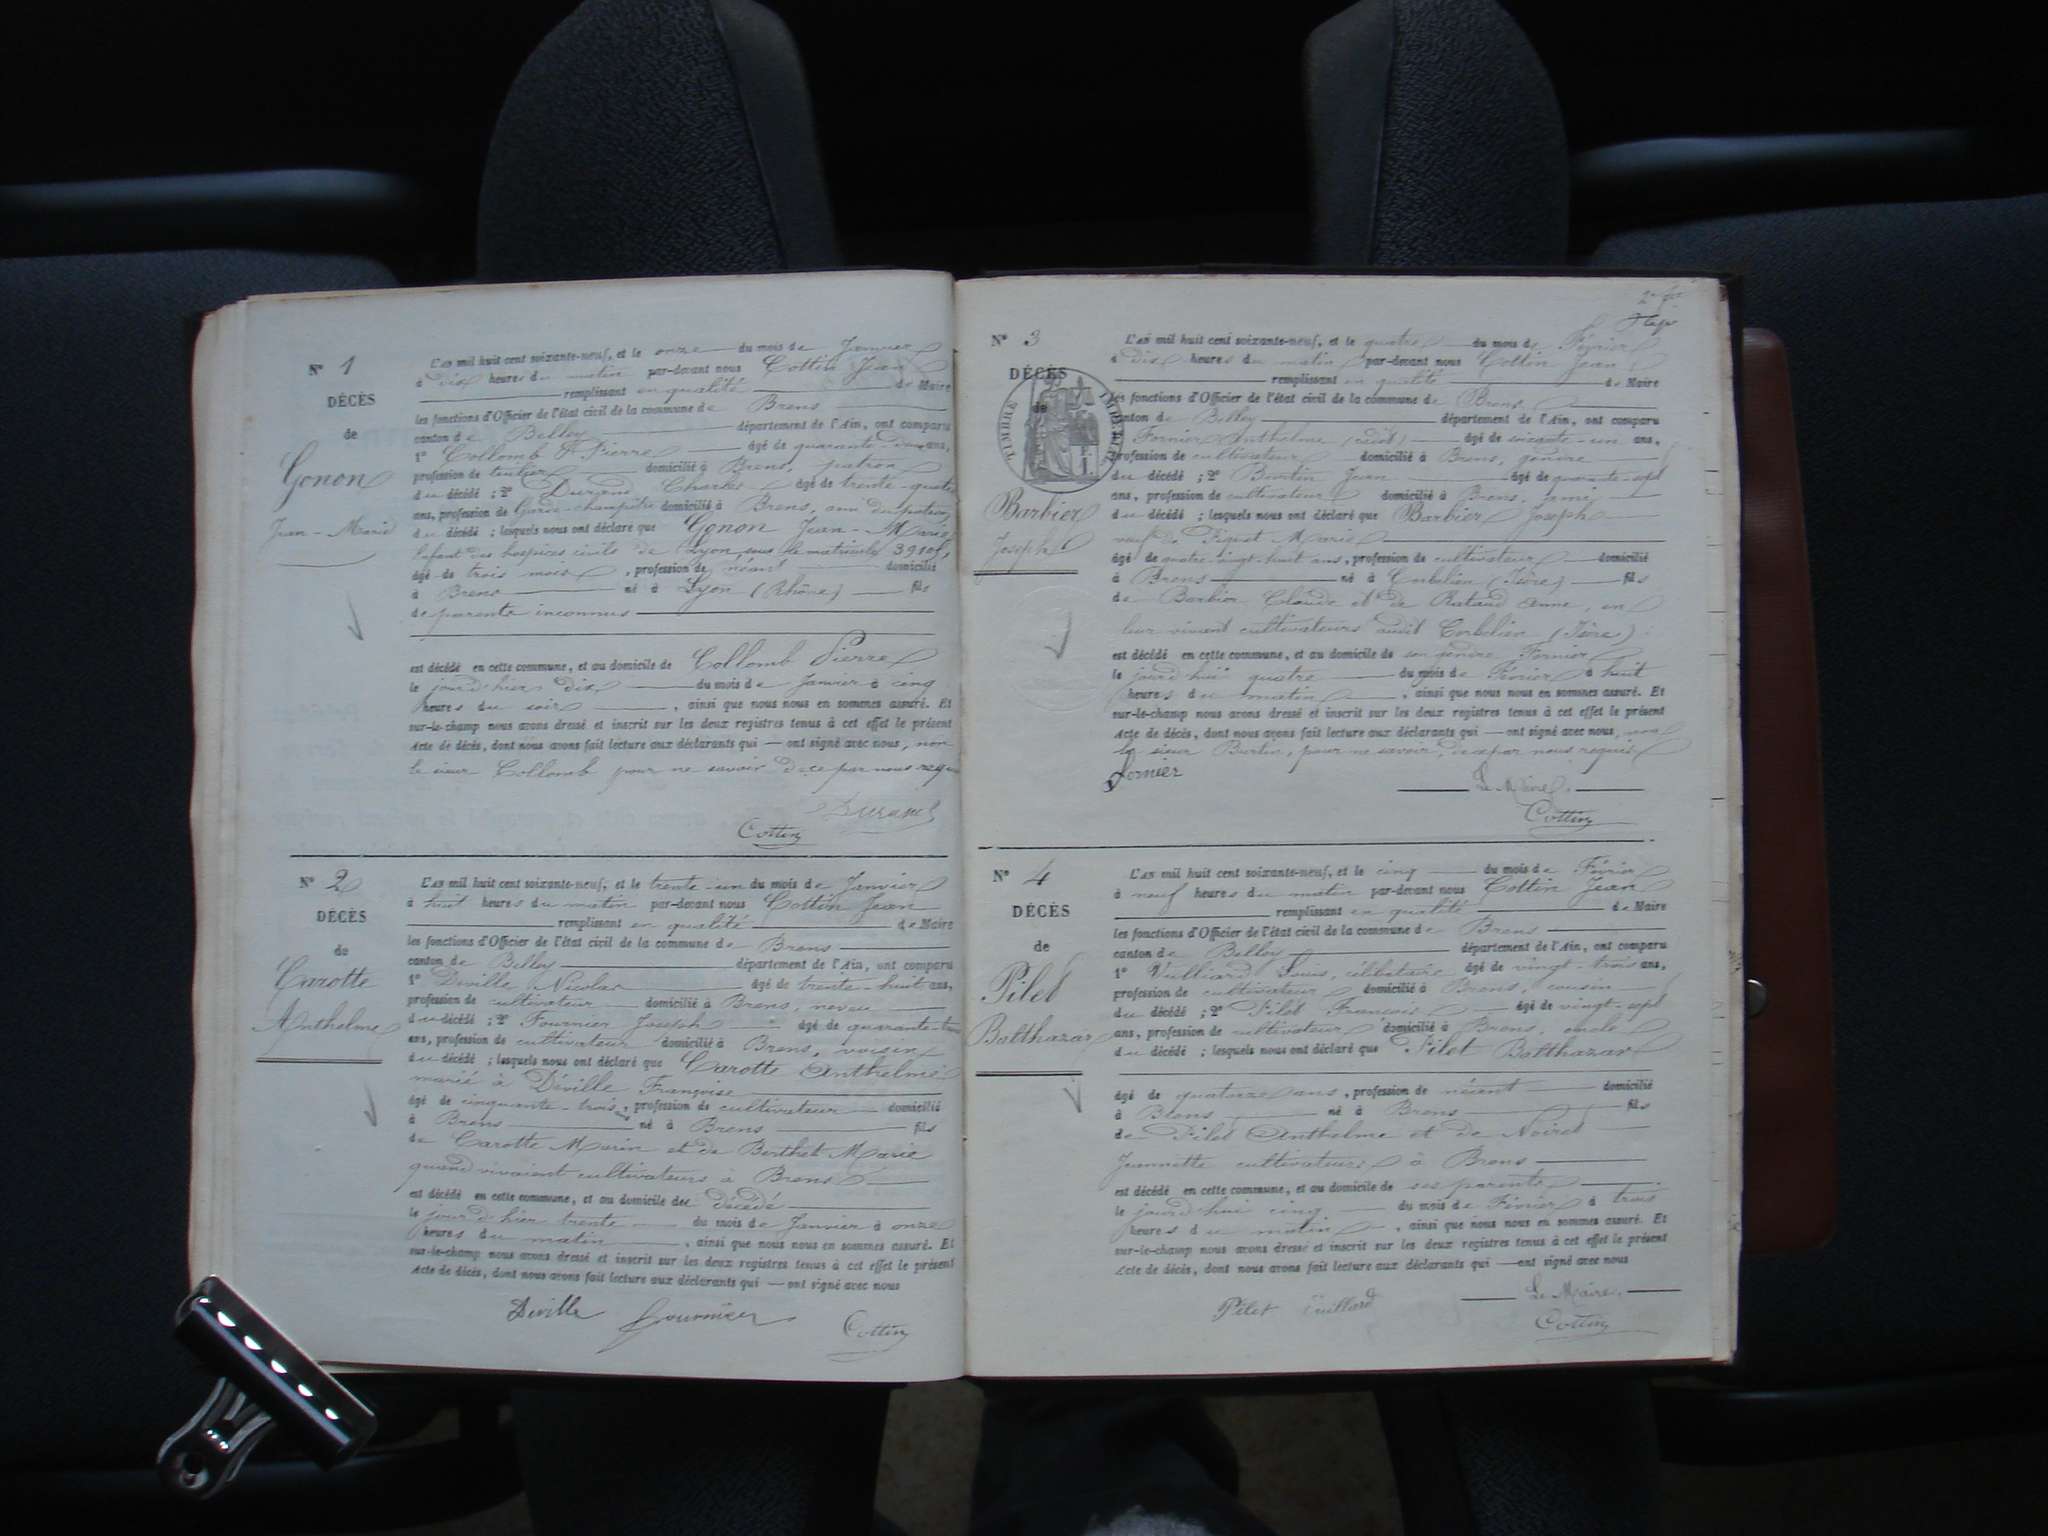 N° 1
DÉCÈS
de
Gonon
Jean-Marie
L'AN mil huit cent soixante-neuf, et le onze du mois de Janvier
à dix heures du matin par-devant nous Cottin Jean
remplissant en qualité de Maire
les fonctions d'Officier de l'état civil de la commune de Brens
canton de Belley département de l'Ain, ont comparu
1° Collomb Pierre âgé de quarante-deux ans,
profession de domicilié à Brens, patron
du décédé ; 2° Durand Charles âgé de trente-quatre
ans, profession de Garde-champêtre domicilié à Brens, ami du patron
du décédé ; lesquels nous ont déclaré que Gonon Jean-Marie
Enfant des hospices civils de Lyon, sous le matricule
âgé de trois mois, profession de néant domicilié
à Brens né à Lyon (Rhône) fils
de parents inconnus
est décédé en cette commune, et au domicile de Collomb Pierre
le jour d'hier dix du mois de Janvier à cinq
heures du soir, ainsi que nous nous en sommes assuré. Et
sur-le-champ nous avons dressé et inscrit sur les deux registres tenus à cet effet le présent
Acte de décès, dont nous avons fait lecture aux déclarants qui ont signé avec nous, non
le sieur Collomb pour ne savoir de ce par nous requis
Durand
Cottin
N° 2
DÉCÈS
de
Carotte
Anthelme
L'AN mil huit cent soixante-neuf, et le trente-un du mois de Janvier
à huit heures du matin par-devant nous Cottin Jean
remplissant en qualité de Maire
les fonctions d'Officier de l'état civil de la commune de Brens
canton de Belley département de l'Ain, ont comparu
1° Déville Nicolas âgé de trente-huit ans,
profession de cultivateur domicilié à Brens, neveu
du décédé ; 2° Fournier Joseph âgé de quarante-trois
ans, profession de cultivateur domicilié à Brens, voisin
du décédé ; lesquels nous ont déclaré que Carotte Anthelme
marié à Déville Françoise
âgé de cinquante-trois ans, profession de cultivateur domicilié
à Brens né à Brens fils
de Carotte Marin et de Berthet Marie
quand vivaient cultivateurs à Brens
est décédé en cette commune, et au domicile des décédé
le jour d'hier trente du mois de Janvier à onze
heures du matin, ainsi que nous nous en sommes assuré. Et
sur-le-champ nous avons dressé et inscrit sur les deux registres tenus à cet effet le présent
Acte de décès, dont nous avons fait lecture aux déclarants qui ont signé avec nous
Deville Fournier Cottin
N° 3
DÉCÈS
de
TIMBRE IMPÉRIAL
Barbier
Joseph
L'AN mil huit cent soixante-neuf, et le quatre du mois de Février
à dix heures du matin par-devant nous Cottin Jean
remplissant en qualité de Maire
les fonctions d'Officier de l'état civil de la commune de Brens
canton de Belley département de l'Ain, ont comparu
Fornier Anthelme (cadet) âgé de soixante-un ans,
profession de cultivateur domicilié à Brens, gendre
du décédé ; 2° Burtin Jean âgé de quarante-sept
ans, profession de cultivateur domicilié à Brens, ami
du décédé ; lesquels nous ont déclaré que Barbier Joseph
veuf de Piquet Marie
âgé de quatre-vingt-huit ans, profession de cultivateur domicilié
à Brens né à Corbelin (Isère) fils
de Barbier Claude et de Rataud Anne, en
leur vivant cultivateurs audit Corbelin (Isère)
est décédé en cette commune, et au domicile de son gendre Fornier
le jourd'hui quatre du mois de Février à huit
heures du matin, ainsi que nous nous en sommes assuré. Et
sur-le-champ nous avons dressé et inscrit sur les deux registres tenus à cet effet le présent
Acte de décès, dont nous avons fait lecture aux déclarants qui ont signé avec nous, non
le sieur Burtin, pour ne savoir, de ce par nous requis
fornier
Le Maire,
Cottin
N° 4
DÉCÈS
de
Pilet
Balthazar
L'AN mil huit cent soixante-neuf, et le cinq du mois de Février
à neuf heures du matin par-devant nous Cottin Jean
remplissant en qualité de Maire
les fonctions d'Officier de l'état civil de la commune de Brens
canton de Belley département de l'Ain, ont comparu
1° Vuilliard Louis, célibataire âgé de vingt-trois ans,
profession de cultivateur domicilié à Brens, cousin
du décédé ; 2° Pilet François âgé de vingt-sept
ans, profession de cultivateur domicilié à Brens, oncle
du décédé ; lesquels nous ont déclaré que Pilet Balthazar
âgé de quatorze ans, profession de néant domicilié
à Brens né à Brens fils
de Pilet Anthelme et de Noiret
Jeannette cultivateurs à Brens
est décédé en cette commune, et au domicile de ses parents
le jourd'hui cinq du mois de Février à trois
heures du matin, ainsi que nous nous en sommes assuré. Et
sur-le-champ nous avons dressé et inscrit sur les deux registres tenus à cet effet le présent
Acte de décès, dont nous avons fait lecture aux déclarants qui ont signé avec nous
Le Maire,
Pilet Cottin